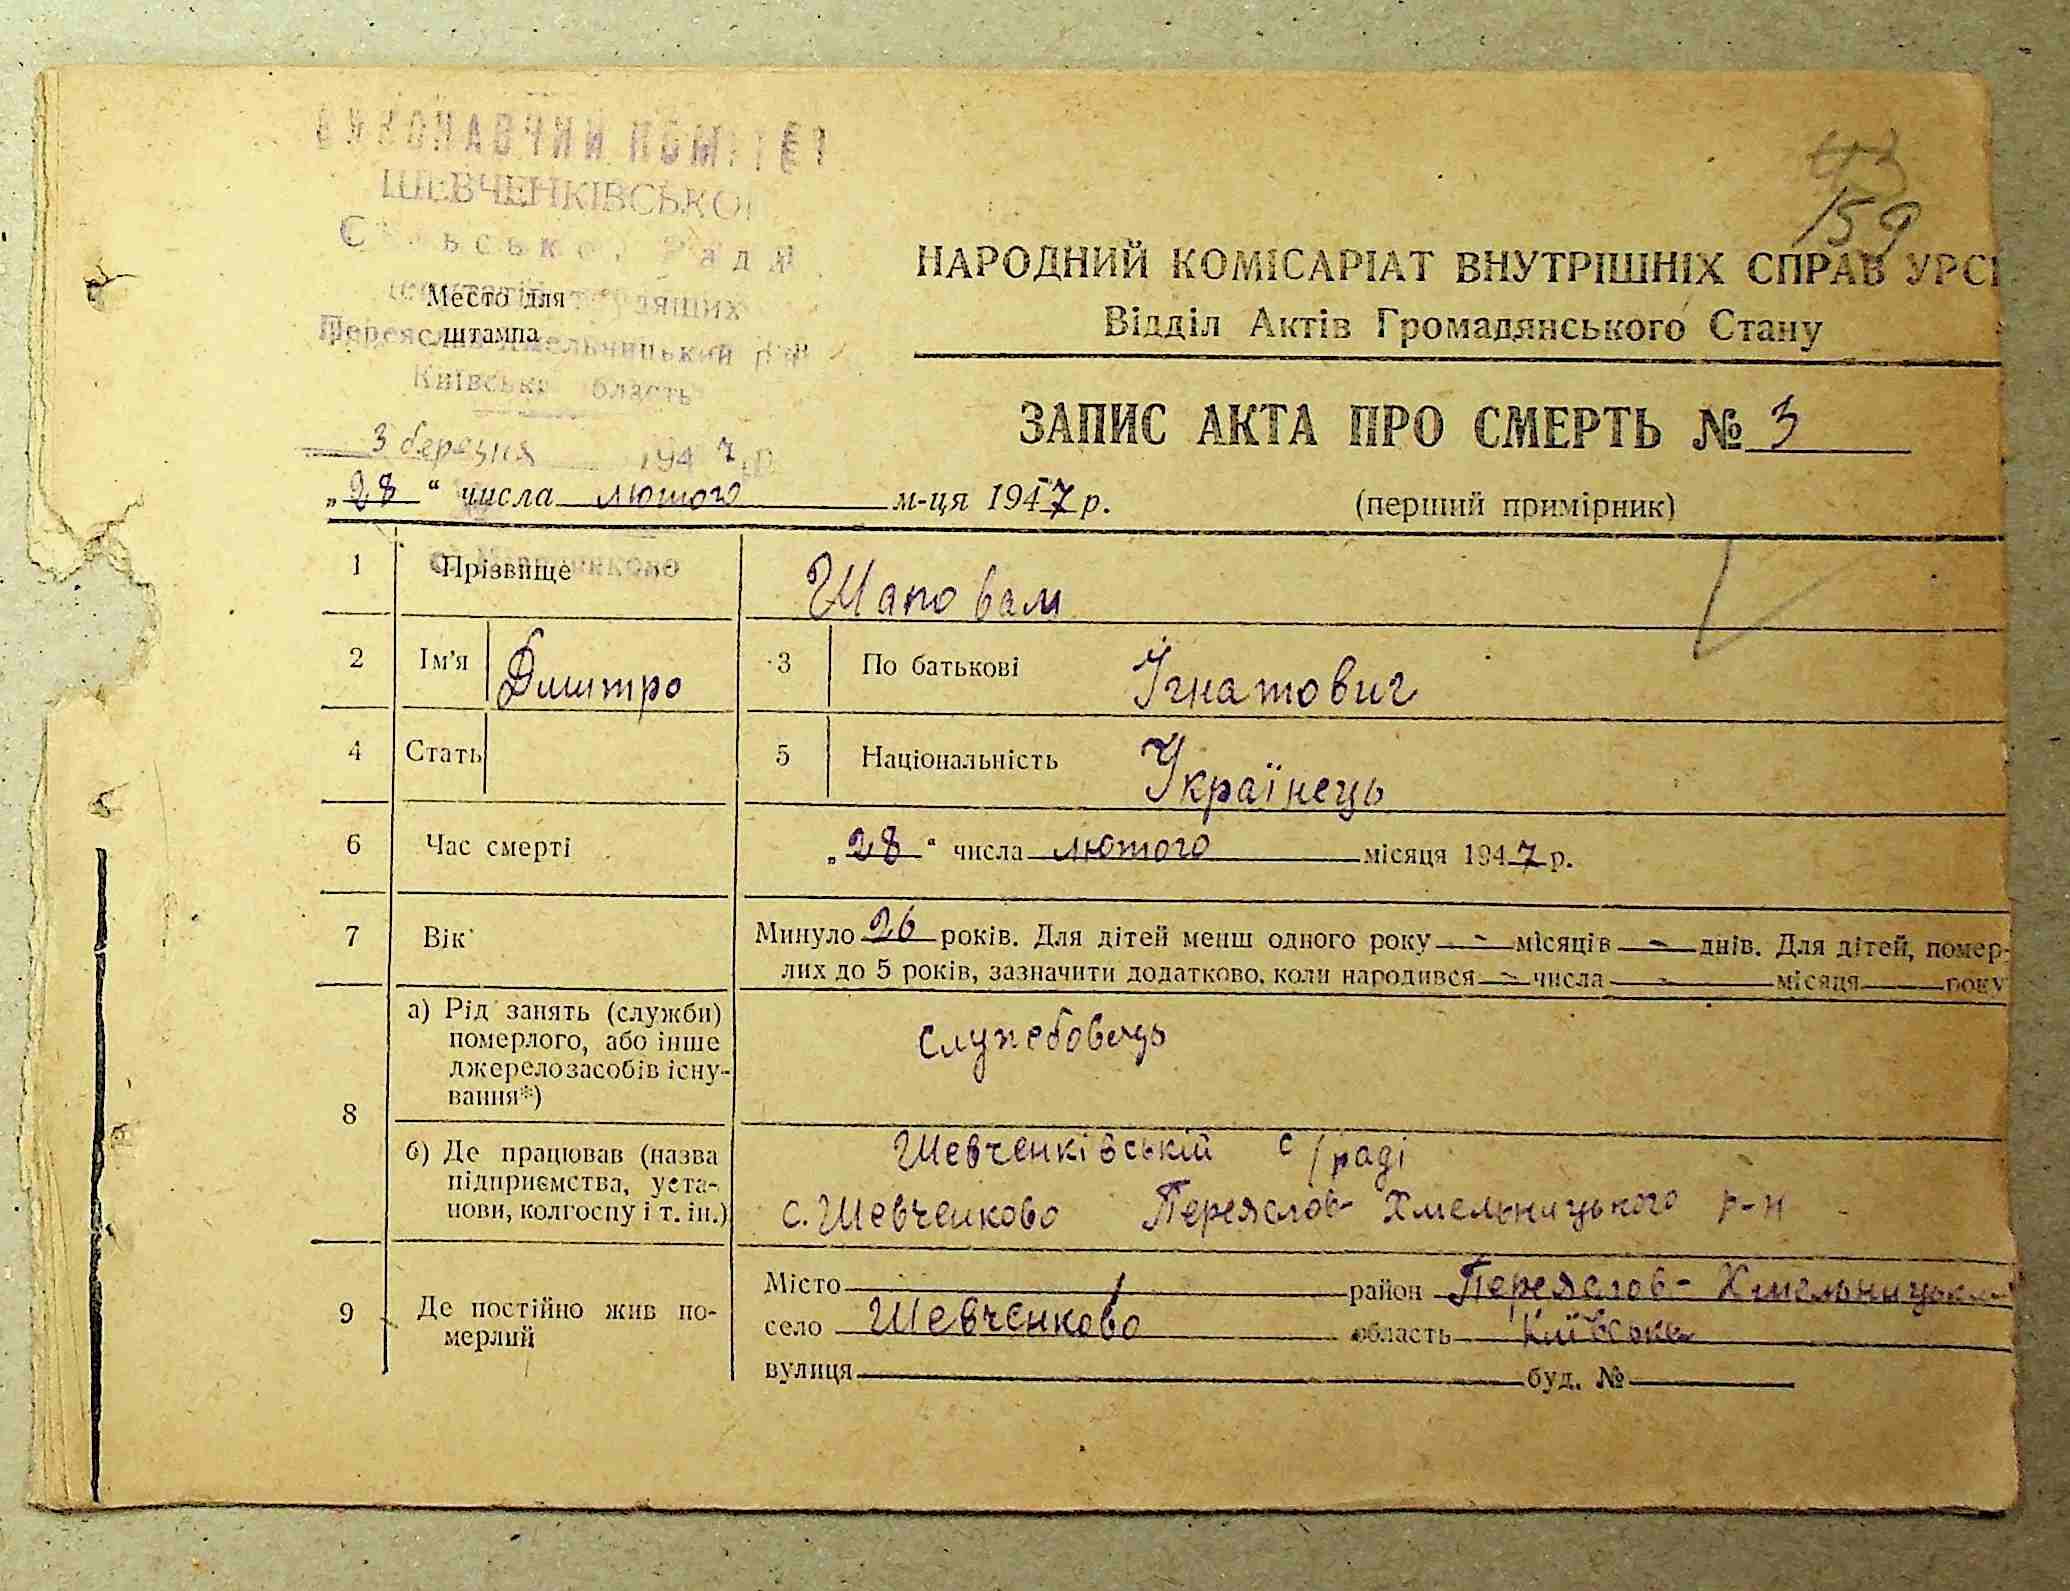 ВИКОНАВЧИЙ КОМІТЕТ
ШЕВЧЕНКІВСЬКОЇ
Сільської Ради
депутатів трудящих
Переяслав-Хмельницький р-н
Київська область
Место для
штампа
3 березня 1947 р.
43
159
НАРОДНИЙ КОМІСАРІАТ ВНУТРІШНІХ СПРАВ УРСР
Відділ Актів Громадянського Стану
ЗАПИС АКТА ПРО СМЕРТЬ № 3
„28“ числа лютого м-ця 1947 р. (перший примірник)
1 Прізвище Шаповал
2 Ім'я Дмитро 3 По батькові Ігнатович
4 Стать 5 Національність Українець
6 Час смерті „28“ числа лютого місяця 1947 р.
7 Вік Минуло 26 років. Для дітей менш одного року - місяців - днів. Для дітей, помер-
лих до 5 років, зазначити додатково, коли народився - числа - місяця року
8 а) Рід занять (служби)
померлого, або інше
джерело засобів існу-
вання*)
службовець
б) Де працював (назва
підприємства, уста-
нови, колгоспу і т. ін.)
Шевченківській с/раді
с. Шевченково Переяслов-Хмельницького р-н
9 Де постійно жив по-
мерлий
Місто район Переяслов-Хмельницьки
село Шевченково область Київська
вулиця буд. №